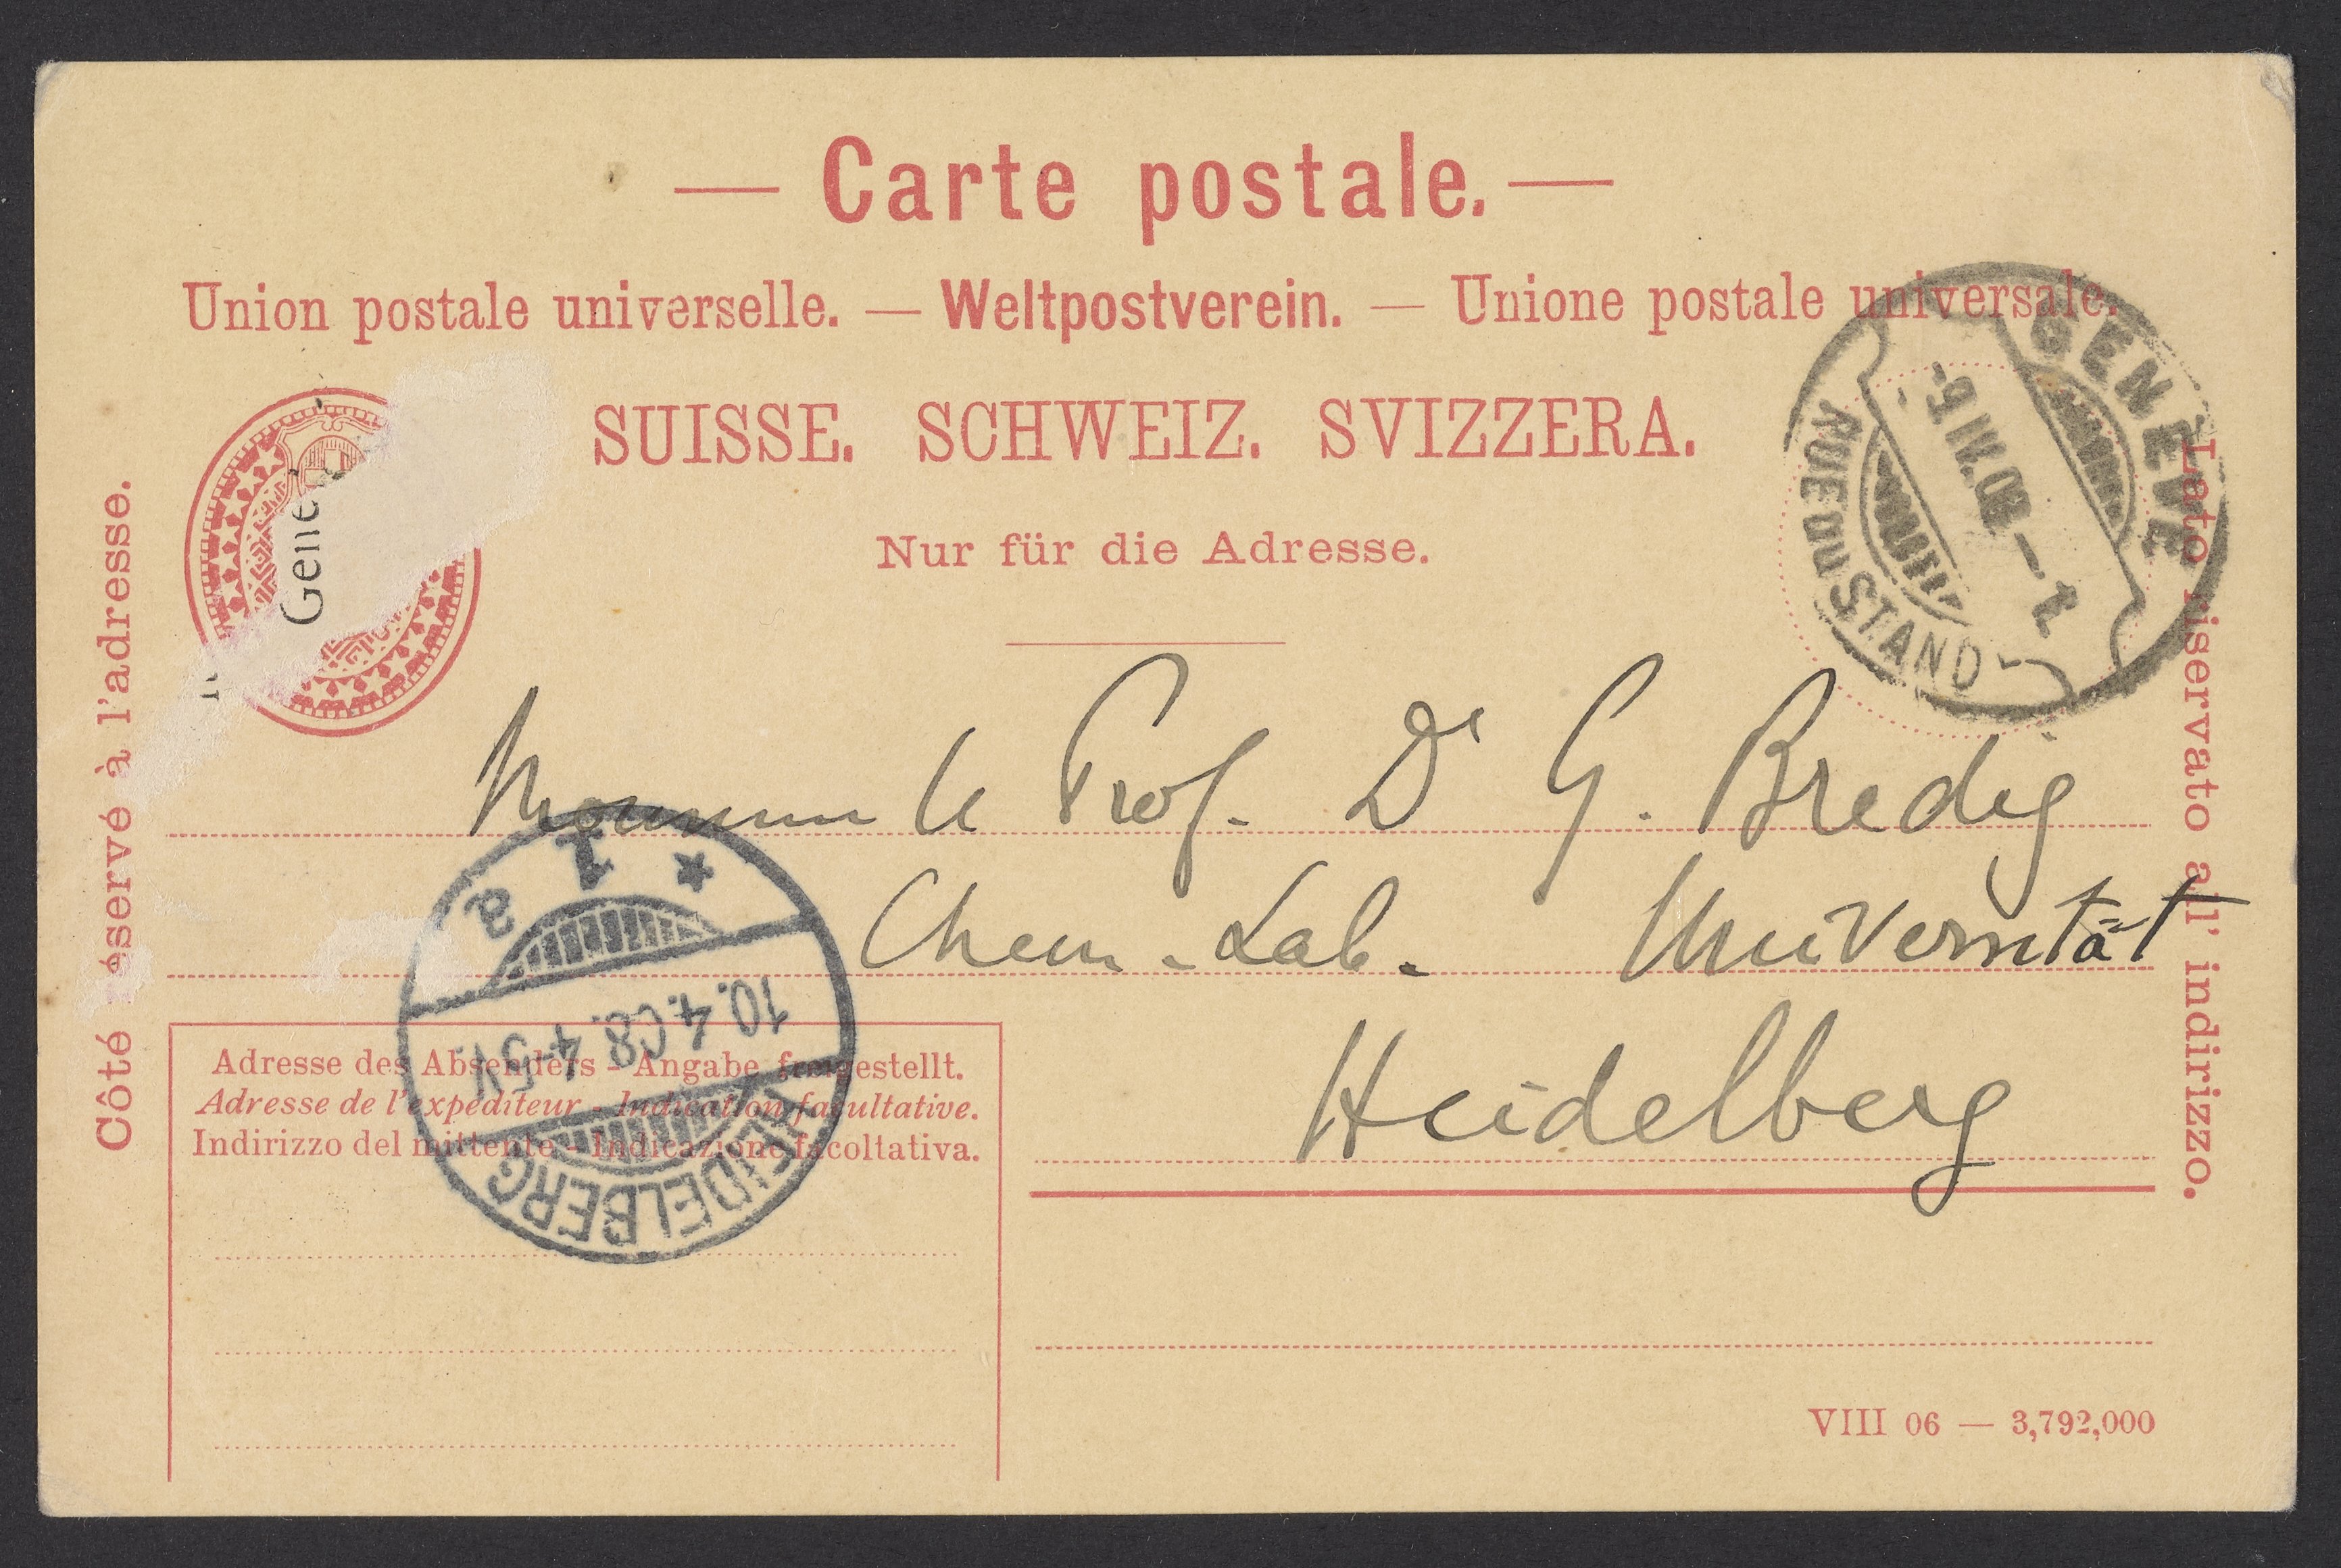 — Carte postale. —
Union postale universelle. — Weltpostverein. — Unione postale universale.
SUISSE. SCHWEIZ. SVIZZERA.
Nur für die Adresse.
Côté réservé à l'adresse.
Lato riservato all' indirizzo.
Gene
GENÈVE
-9.IV.08-
RUE DU STAND
Monsieur le Prof. Dr G. Bredig
Chem. Lab. Universität
Heidelberg
* 1 a
10.4.08. 4-5V.
HEIDELBERG
Adresse des Absenders - Angabe freigestellt.
Adresse de l'expéditeur - Indication facultative.
Indirizzo del mittente - Indicazione facoltativa.
VIII 06 — 3,792,000